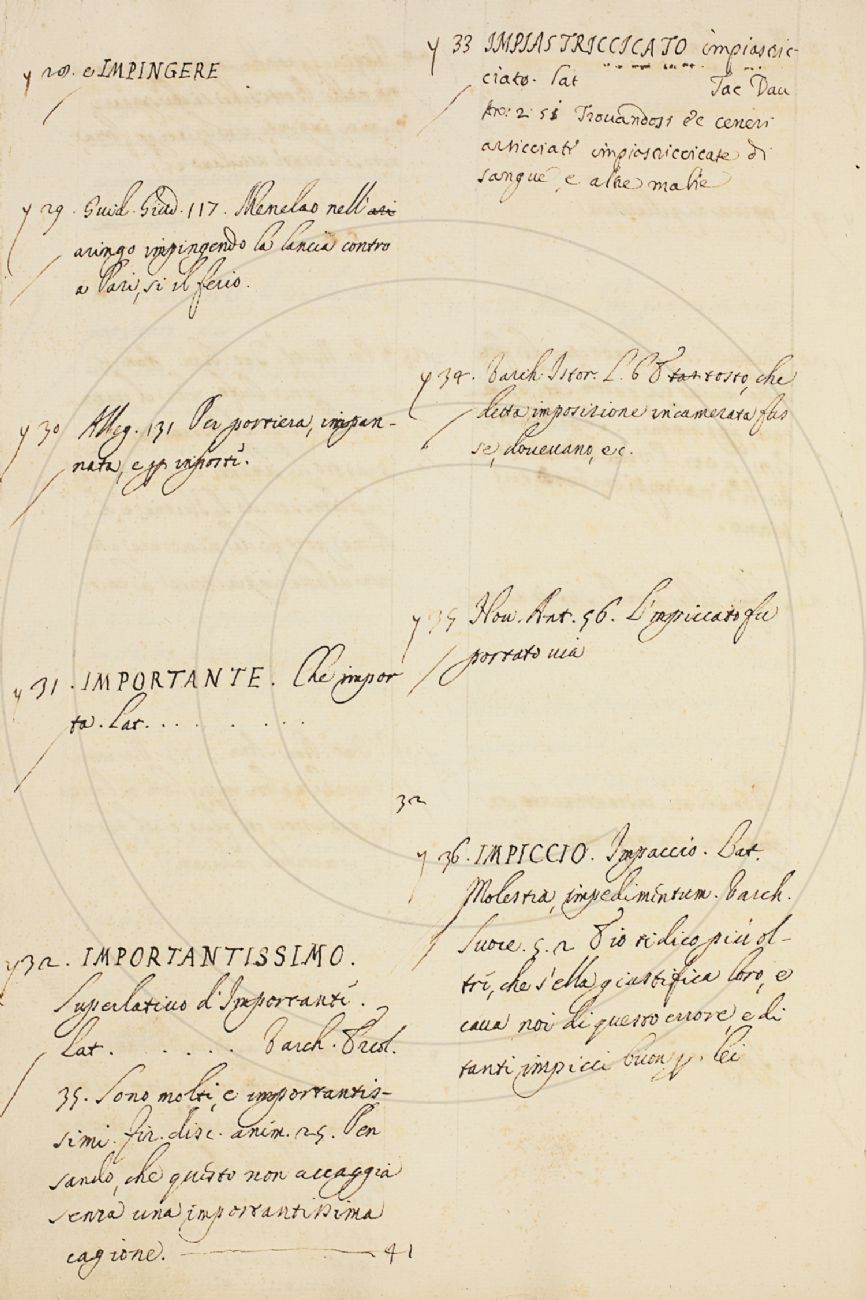 y 28. e IMPINGERE
y 29. Guid. Giud. 117. Menelao nell'
aringo impingendo la lancia contro
a Pari, si il ferio.
y 30 Alleg. 131 Per portiera, impan-
nata, e inposti.
y 31. IMPORTANTE. Che impor
ta. Lat. . . . . . . .
y 32. IMPORTANTISSIMO.
Superlativo d'Importanti.
Lat. . . . . . . Varch. Ercol.
35. Sono molti, e importantis-
simi. fir. disc. anim. 25. Pen
sando, che questo non accaggia
senza una importantissima
cagione. 41
y 33 IMPIASTRICCICATO impiastric-
ciato. Lat Tac Dav
Ann. 2. 51 Trovandosi &c ceneri
arsicciati impiastriccicate di
sangue, e altre malie
y 34. Varch. Istor. L. 6 E tantosto, che
detta imposizione incamerata fus
se, dovevano, ec.
y 35 Nov. Ant. 56. L'impiccato fu
portato via
32
y 36. IMPICCIO. Impaccio. Lat.
Molestia, impedimintum. Varch.
Suoce. 5. 2 E io ti dico più ol-
tri, che s'ella giustifica loro, e
cava noi di questo errore, e di
tanti impicci buon p. lei